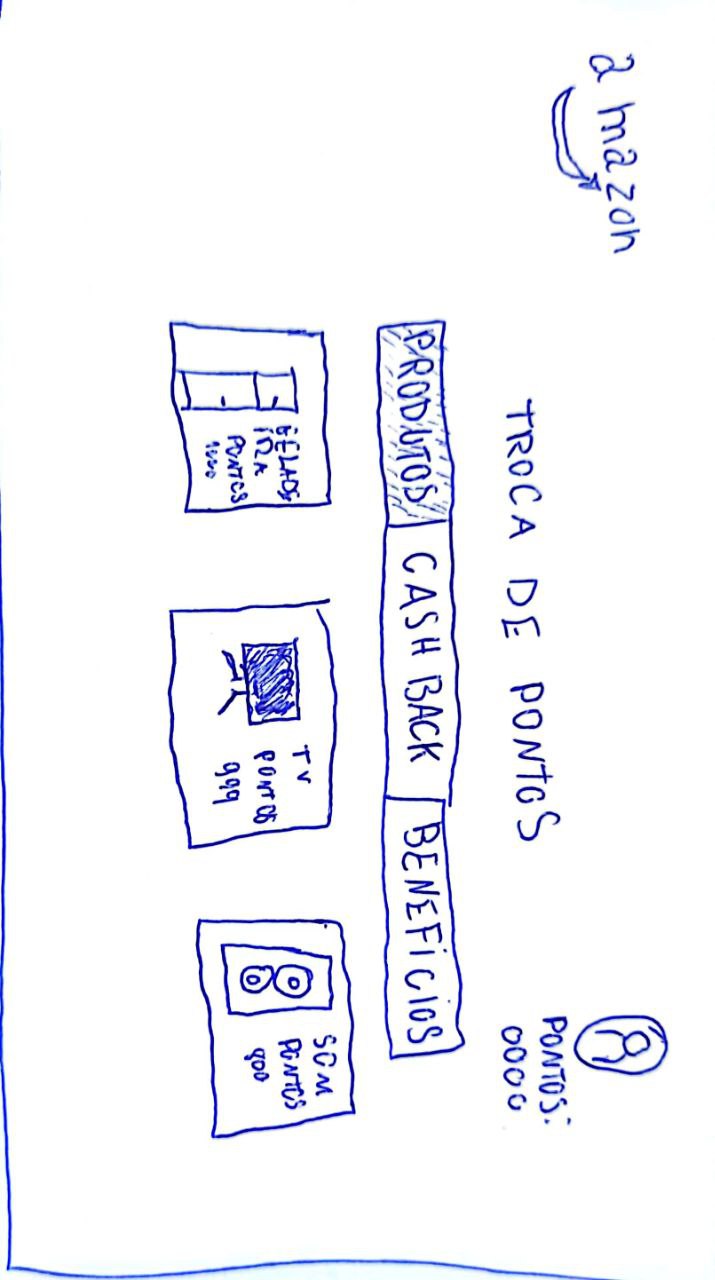 amazon
PONTOS:
0000
TROCA DE PONTOS
PRODUTOS
CASH BACK
BENEFÍCIOS
GELADE
IRA
PONTOS
1000
TV
PONTOS
999
SOM
PONTOS
800